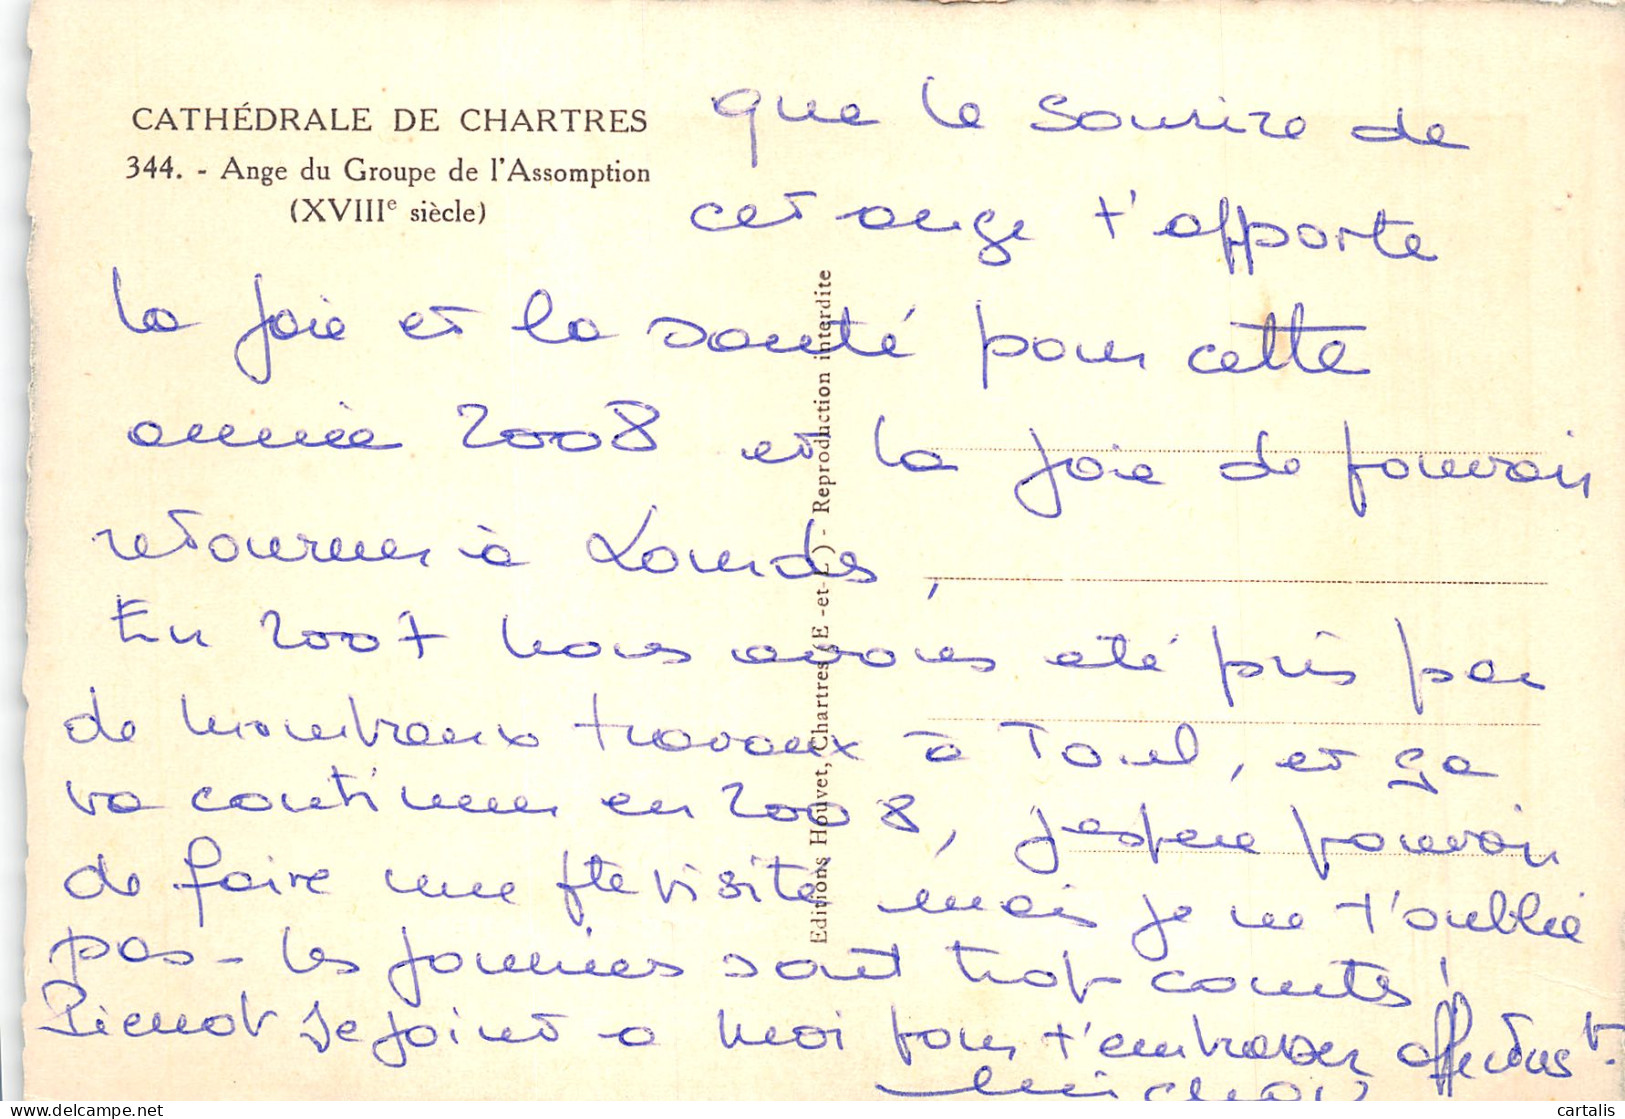 CATHÉDRALE DE CHARTRES
344. - Ange du Groupe de l'Assomption
(XVIIIe siècle)
que le sourire de
cet ange t'apporte
la joie et la santé pour cette
année 2008 et la joie de pouvoir
retourner à Lourdes,
En 2007 nous avons été pris par
de nombreux travaux à Toul, et ça
va continuer en 2008, j'espère pouvoir
de faire une pte visite, mais je ne t'oublie
pas - les journées sont trop courtes!
Pierrot se joint à moi pour t'embrasser affectust.
Editions Houvet, Chartres (E.-et-L.) - Reproduction interdite
www.delcampe.net
cartalis